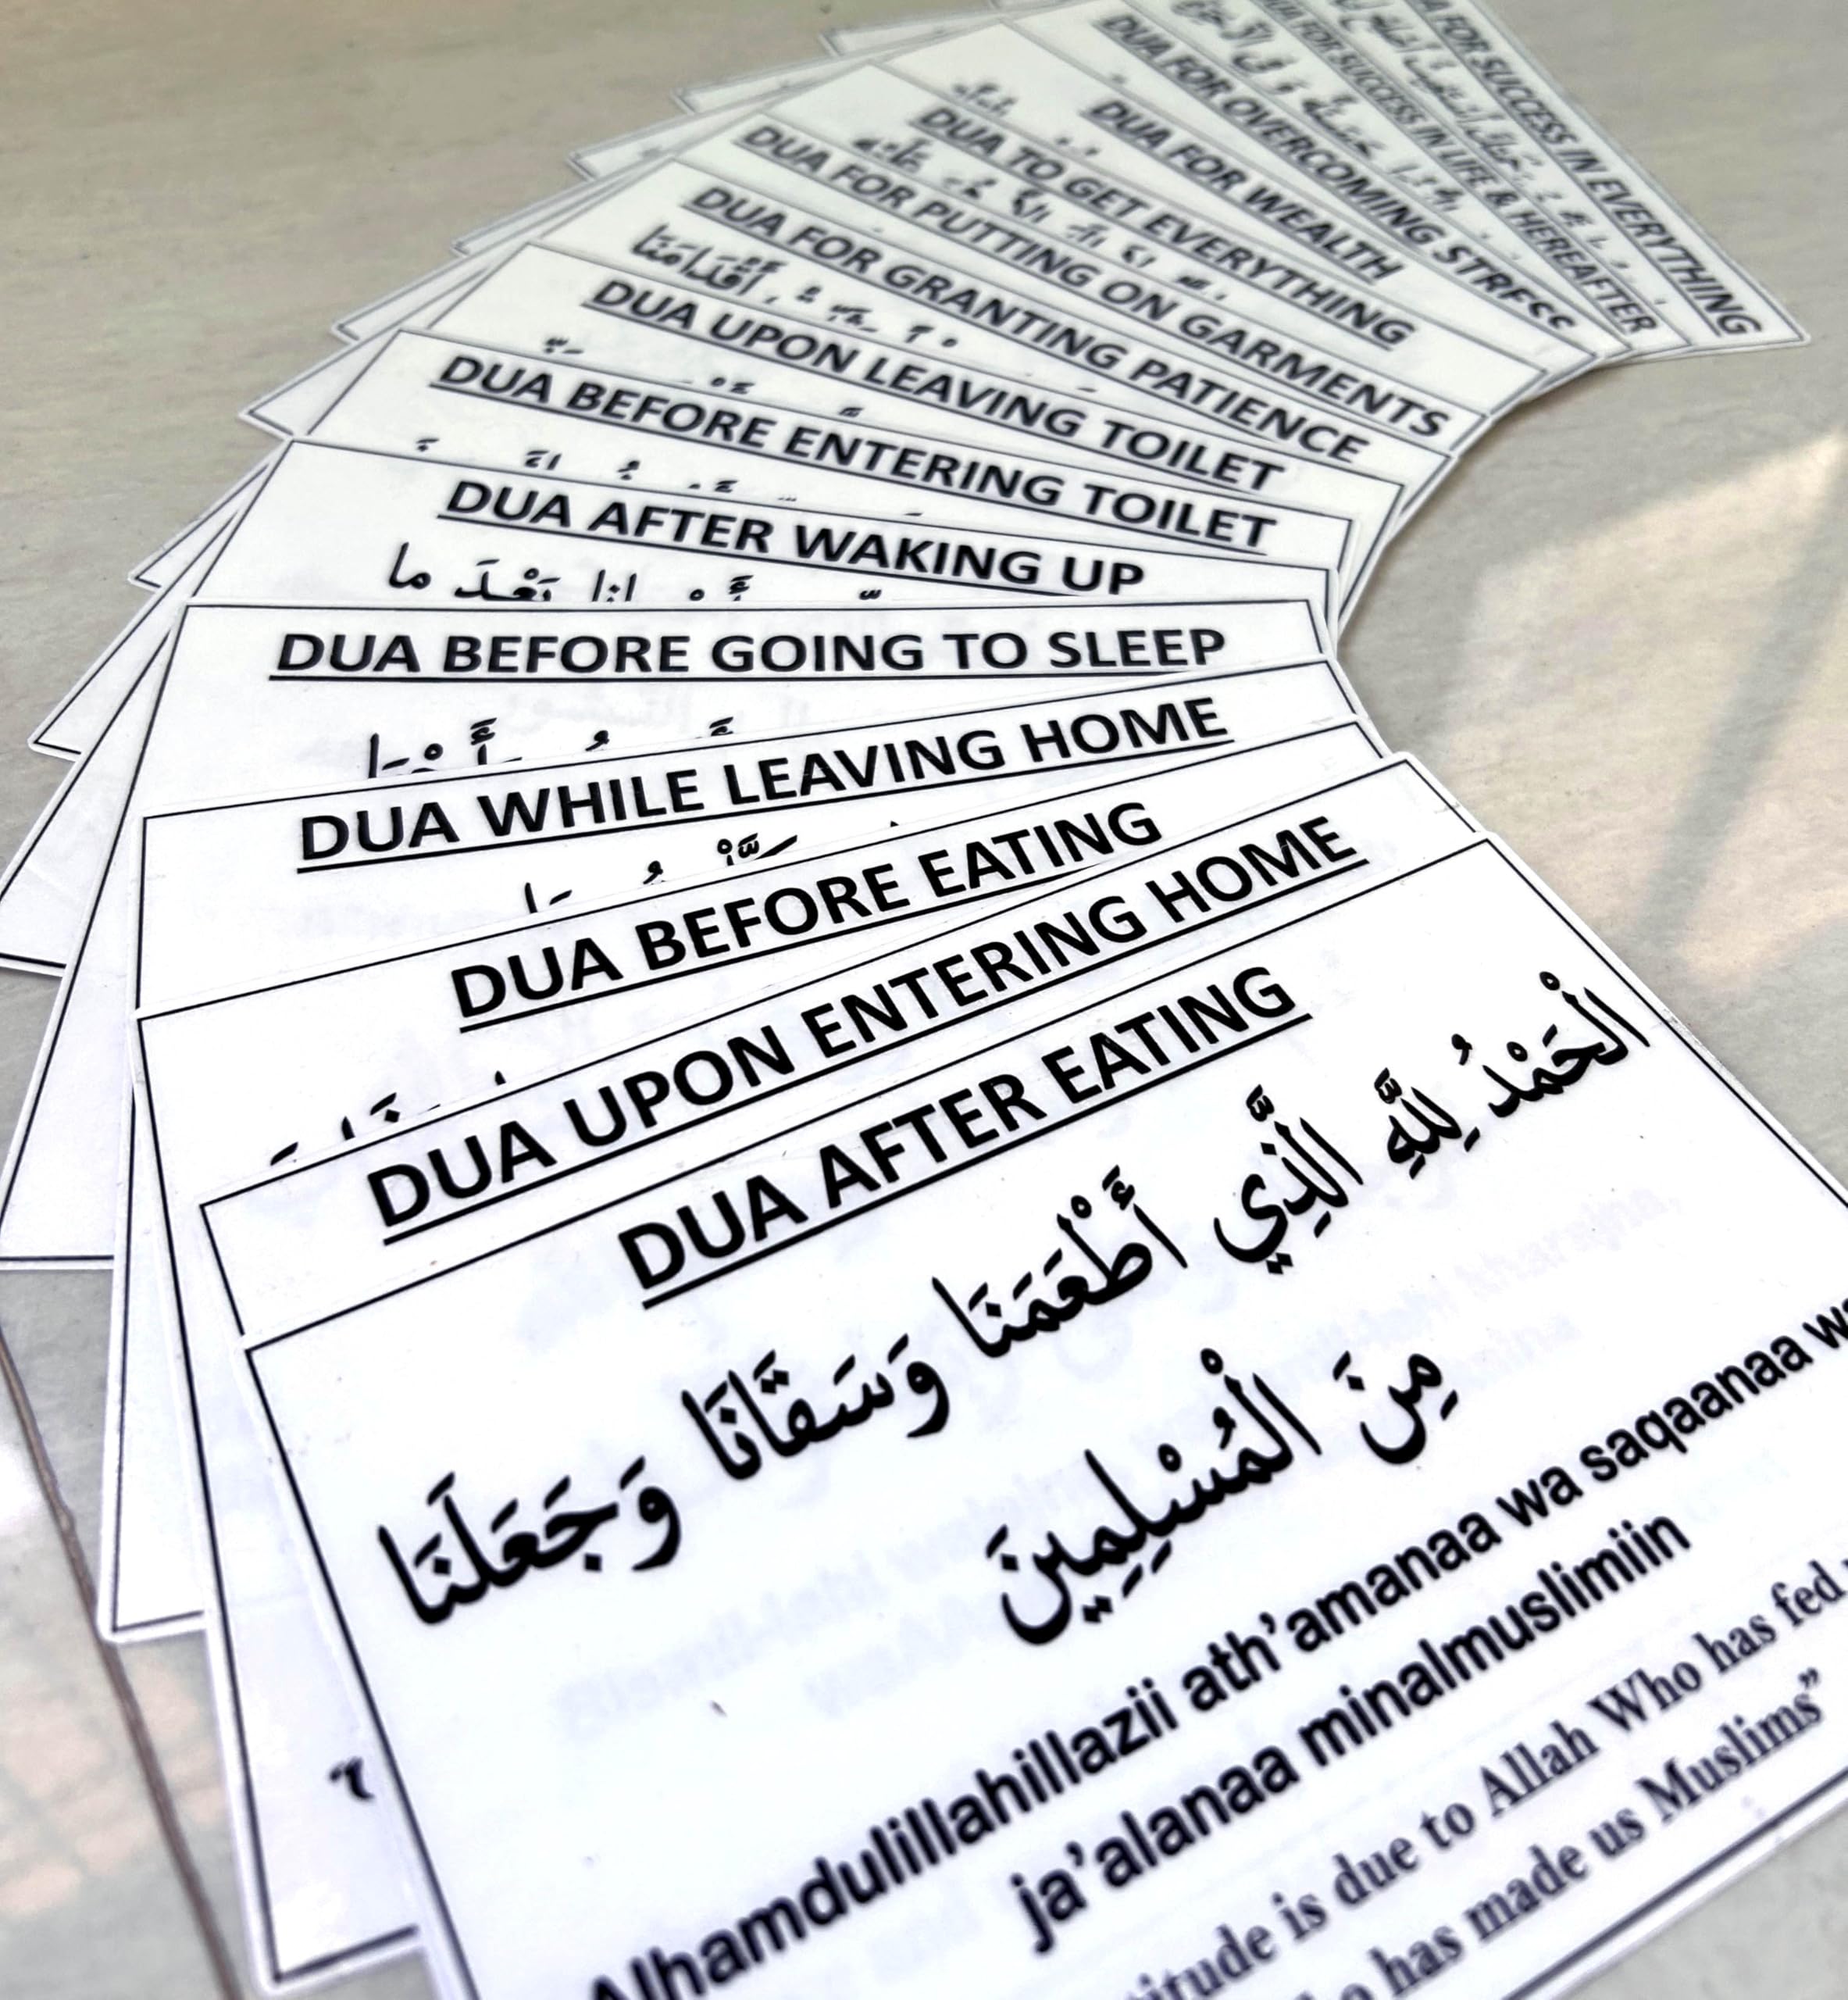 FOR SUCCESS IN EVERYTHING
FOR SUCCESS IN LIFE & HEREAFTER
DUA FOR OVERCOMING STRESS
DUA FOR WEALTH
DUA TO GET EVERYTHING
DUA FOR PUTTING ON GARMENTS
DUA FOR GRANTING PATIENCE
DUA UPON LEAVING TOILET
DUA BEFORE ENTERING TOILET
DUA AFTER WAKING UP
بَعْدَ ما
DUA BEFORE GOING TO SLEEP
DUA WHILE LEAVING HOME
DUA BEFORE EATING
DUA UPON ENTERING HOME
DUA AFTER EATING
الْحَمْدُ لِلَّهِ الَّذِي أَطْعَمَنَا وَسَقَانَا وَجَعَلَنَا
مِنَ الْمُسْلِمِينَ
Alhamdulillahillazii ath’amanaa wa saqaanaa
ja’alanaa minalmuslimiin
is due to Allah Who has fed
has made us Muslims”